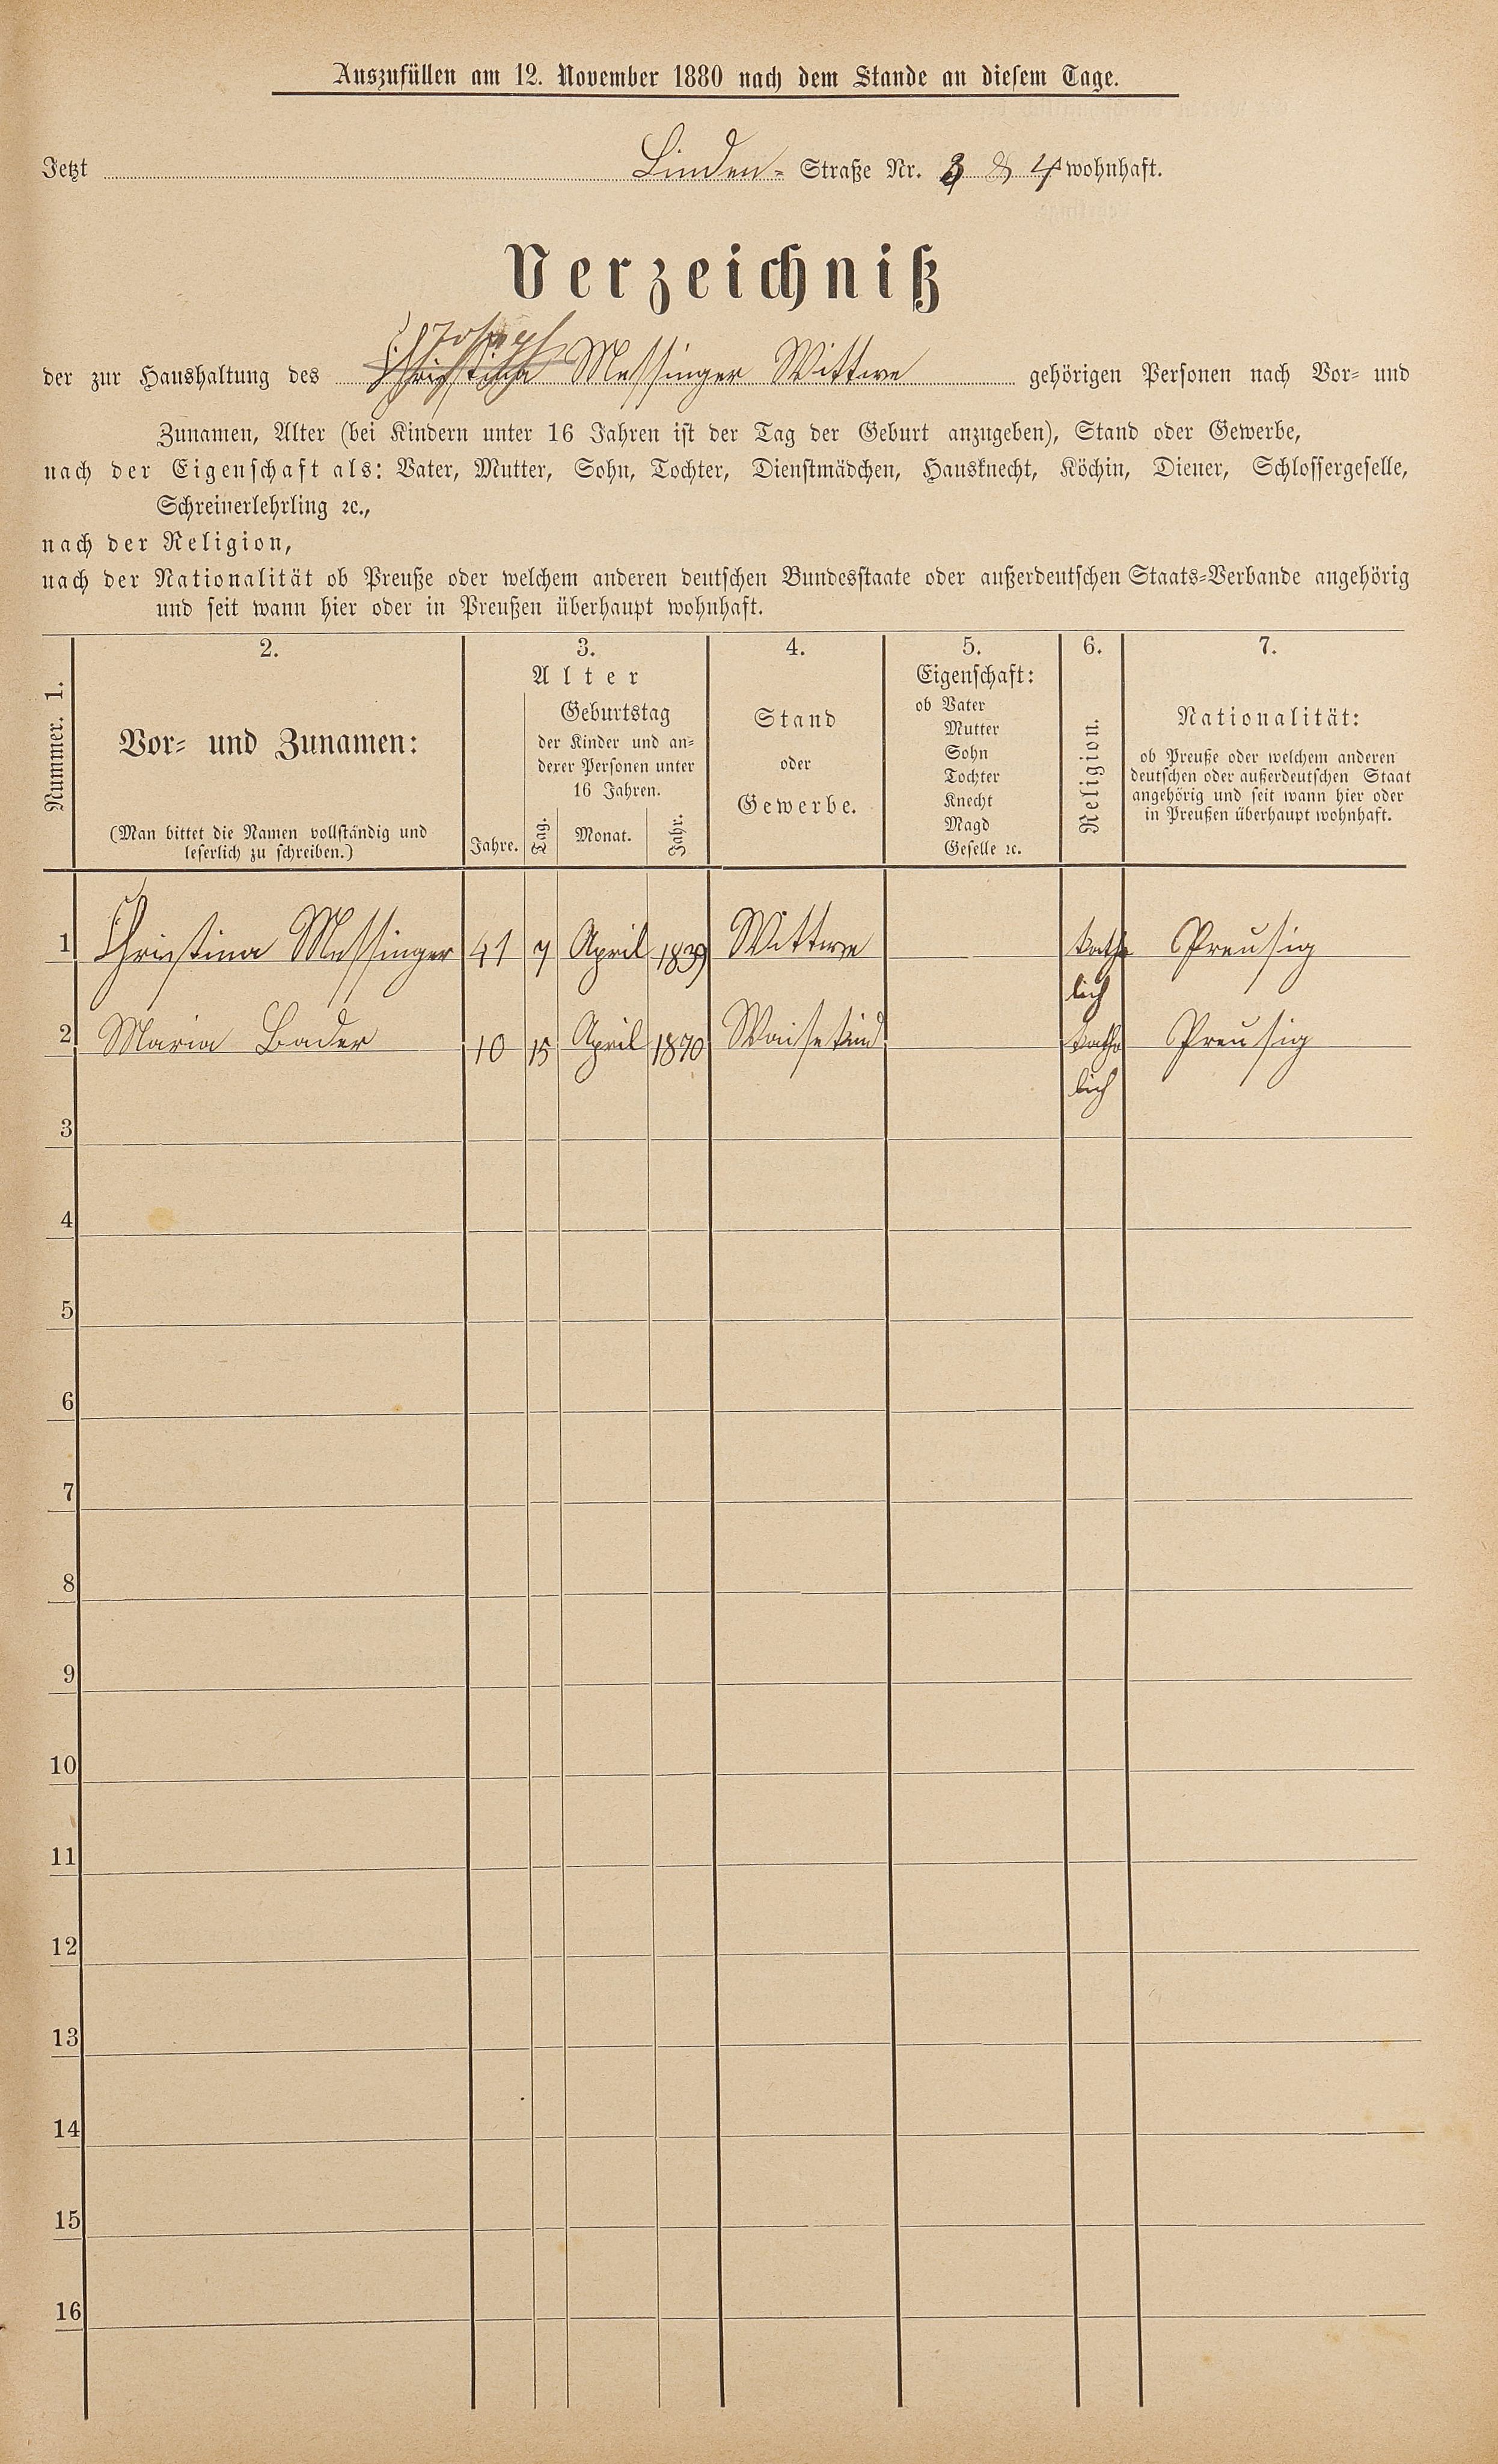 Auszufüllen am 12. November 1880 nach dem Stande an diesem Tage.
Jetzt Linden- Straße Nr. 3 & 4 wohnhaft.
Verzeichniß
Joseph
der zur Haushaltung des Christina Messinger Wittwe gehörigen Personen nach Vor- und
Zunamen, Alter (bei Kindern unter 16 Jahren ist der Tag der Geburt anzugeben), Stand oder Gewerbe,
nach der Eigenschaft als: Vater, Mutter, Sohn, Tochter, Dienstmädchen, Hausknecht, Köchin, Diener, Schlossergeselle,
Schreinerlehrling ꝛc.,
nach der Religion,
nach der Nationalität ob Preuße oder welchem anderen deutschen Bundesstaate oder außerdeutschen Staats-Verbande angehörig
und seit wann hier oder in Preußen überhaupt wohnhaft.
Nummer. 1.
2.
Vor- und Zunamen:
(Man bittet die Namen vollständig und
leserlich zu schreiben.)
3.
Alter
Jahre.
Geburtstag
der Kinder und an-
derer Personen unter
16 Jahren.
Tag. Monat. Jahr.
4.
Stand
oder
Gewerbe.
5.
Eigenschaft:
ob Vater
Mutter
Sohn
Tochter
Knecht
Magd
Geselle ꝛc.
6.
Religion.
7.
Nationalität:
ob Preuße oder welchem anderen
deutschen oder außerdeutschen Staat
angehörig und seit wann hier oder
in Preußen überhaupt wohnhaft.
1 Christina Messinger 41 7 April 1839 Wittwe katho Preusig
lich
2 Maria Bader 10 15 April 1870 Waisekind katho Preusig
lich
3
4
5
6
7
8
9
10
11
12
13
14
15
16